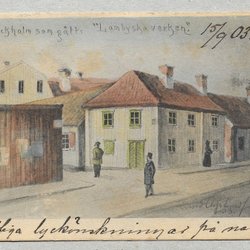 ckholm som gått: "Lambyska verken"
15/9 03
liga lyckönskningar på na